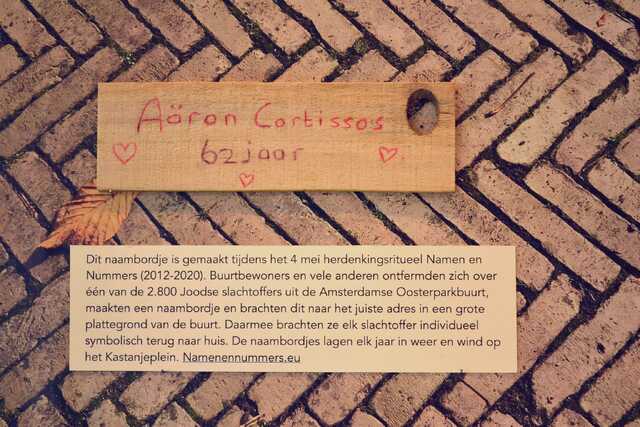 Aäron Cortissos
62 jaar
Dit naambordje is gemaakt tijdens het 4 mei herdenkingsritueel Namen en
Nummers (2012-2020). Buurtbewoners en vele anderen ontfermden zich over
één van de 2.800 Joodse slachtoffers uit de Amsterdamse Oosterparkbuurt,
maakten een naambordje en brachten dit naar het juiste adres in een grote
plattegrond van de buurt. Daarmee brachten ze elk slachtoffer individueel
symbolisch terug naar huis. De naambordjes lagen elk jaar in weer en wind op
het Kastanjeplein. Namenennummers.eu